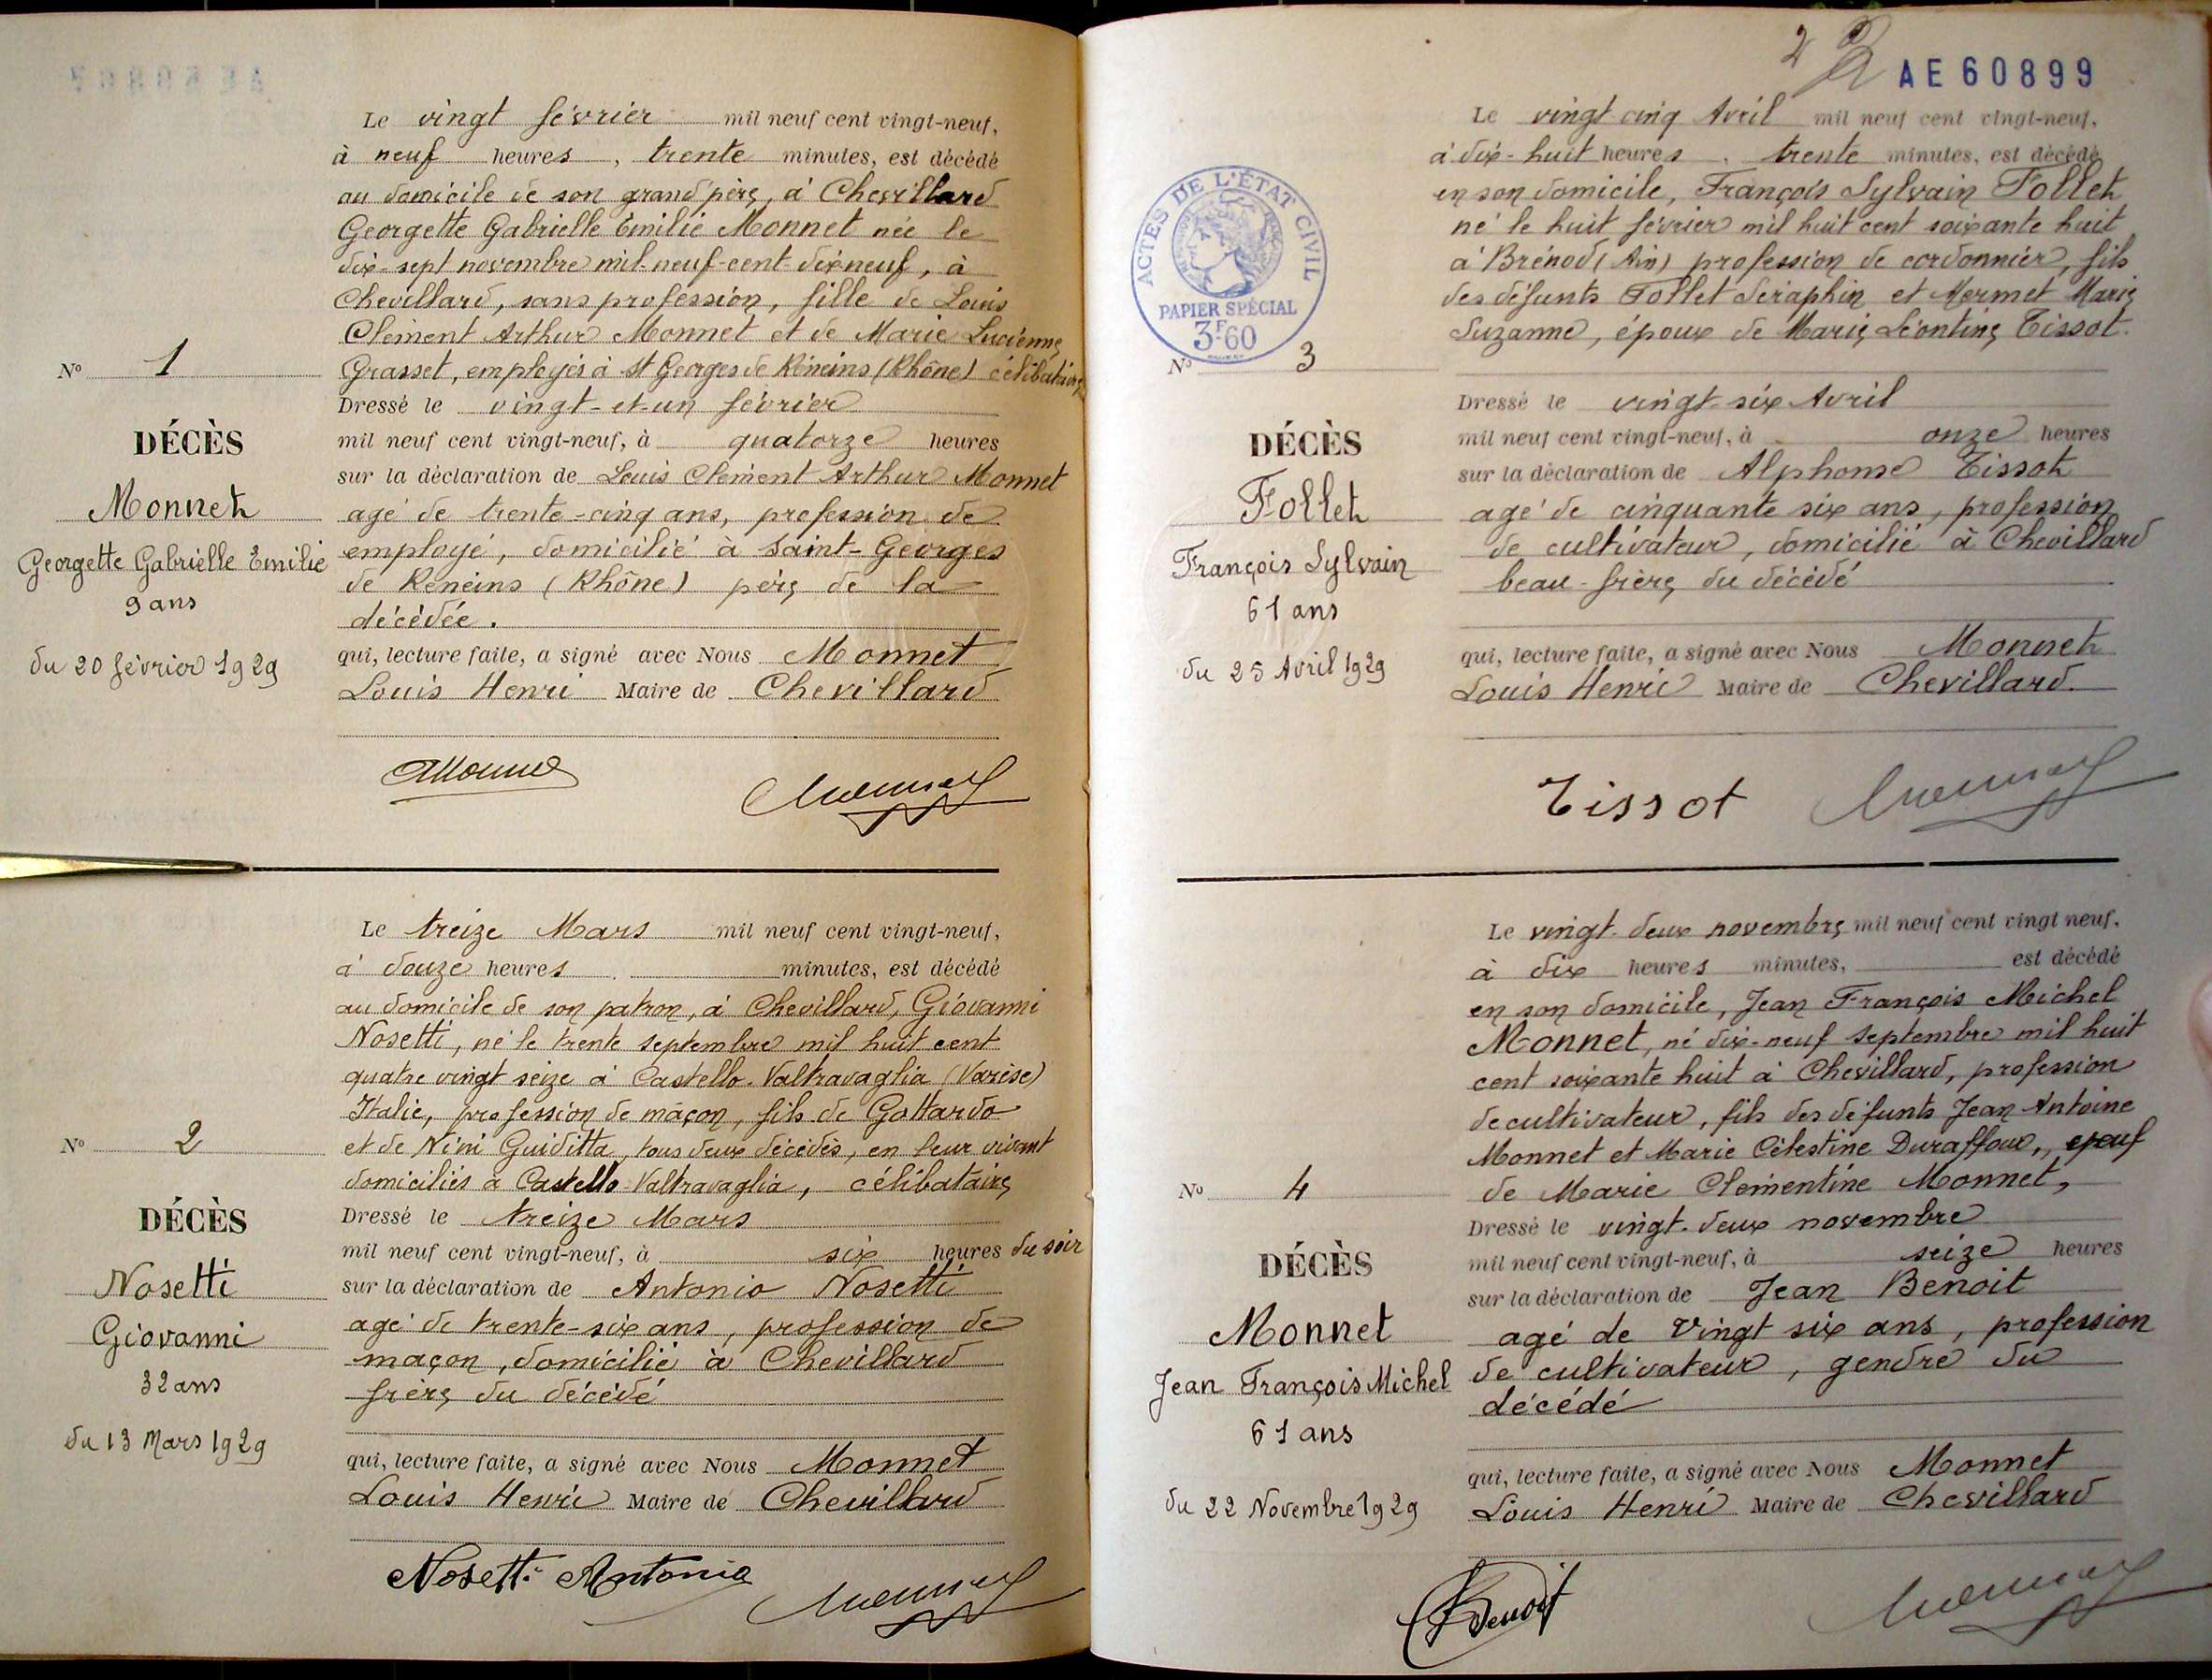 Le vingt février mil neuf cent vingt-neuf,
à neuf heures, trente minutes, est décédé
au domicile de son grand père, à Chevillard
Georgette Gabrielle Emilie Monnet née le
dix-sept novembre mil-neuf-cent-dix-neuf, à
Chevillard, sans profession, fille de Louis
Clément Arthur Monnet et de Marie Lucienne
Grasset, employés à St Georges de Réneins (Rhône) célibataire
Nº 1
DÉCÈS
Monnet
Georgette Gabrielle Emilie
9 ans
du 20 février 1929
Dressé le vingt-et-un février
mil neuf cent vingt-neuf, à quatorze heures
sur la déclaration de Louis Clément Arthur Monnet
agé de trente-cinq ans, profession de
employé, domicilié à Saint-Georges
de Réneins (Rhône) père de la
décédée.
qui, lecture faite, a signé avec Nous Monnet
Louis Henri Maire de Chevillard
Le treize Mars mil neuf cent vingt-neuf,
à douze heures minutes, est décédé
au domicile de son patron, à Chevillard, Giovanni
Nosetti, né le trente septembre mil huit cent
quatre vingt seize à Castello-Valtravaglia (Varèse)
Italie, profession de maçon, fils de Gottardo
et de Nini Guiditta, tous deux décédés, en leur vivant
domiciliés à Castello-Valtravaglia, célibataire
Nº 2
DÉCÈS
Nosetti
Giovanni
32 ans
du 13 Mars 1929
Dressé le treize Mars
mil neuf cent vingt-neuf, à six heures du soir
sur la déclaration de Antonio Nosetti
agé de trente-six ans, profession de
maçon, domicilié à Chevillard
frère du décédé
qui, lecture faite, a signé avec Nous Monnet
Louis Henri Maire de Chevillard
Nosetti Antonio
2
AE 60899
ACTES DE L'ÉTAT CIVIL
PAPIER SPÉCIAL
3F60
Le vingt-cinq Avril mil neuf cent vingt-neuf,
à dix-huit heures, trente minutes, est décédé
en son domicile, François Sylvain Follet
né le huit février mil huit cent soixante huit
à Brénod (Ain) profession de cordonnier, fils
des défunts Follet Séraphin et Mermet Marie
Suzanne, époux de Marie Léontine Tissot.
Nº 3
DÉCÈS
Follet
François Sylvain
61 ans
du 25 Avril 1929
Dressé le vingt-six Avril
mil neuf cent vingt-neuf, à onze heures
sur la déclaration de Alphonse Tissot
agé de cinquante six ans, profession
de cultivateur, domicilié à Chevillard
beau-frère du décédé
qui, lecture faite, a signé avec Nous Monnet
Louis Henri Maire de Chevillard.
Tissot
Le vingt-deux novembre mil neuf cent vingt neuf,
à dix heures minutes, est décédé
en son domicile, Jean François Michel
Monnet, né dix-neuf septembre mil huit
cent soixante huit à Chevillard, profession
de cultivateur, fils des défunts Jean Antoine
Monnet et Marie Célestine Duraffour, époux
de Marie Clémentine Monnet,
Nº 4
DÉCÈS
Monnet
Jean François Michel
61 ans
du 22 Novembre 1929
Dressé le vingt-deux novembre
mil neuf cent vingt-neuf, à seize heures
sur la déclaration de Jean Benoit
agé de vingt six ans, profession
de cultivateur, gendre du
décédé
qui, lecture faite, a signé avec Nous Monnet
Louis Henri Maire de Chevillard
Benoit